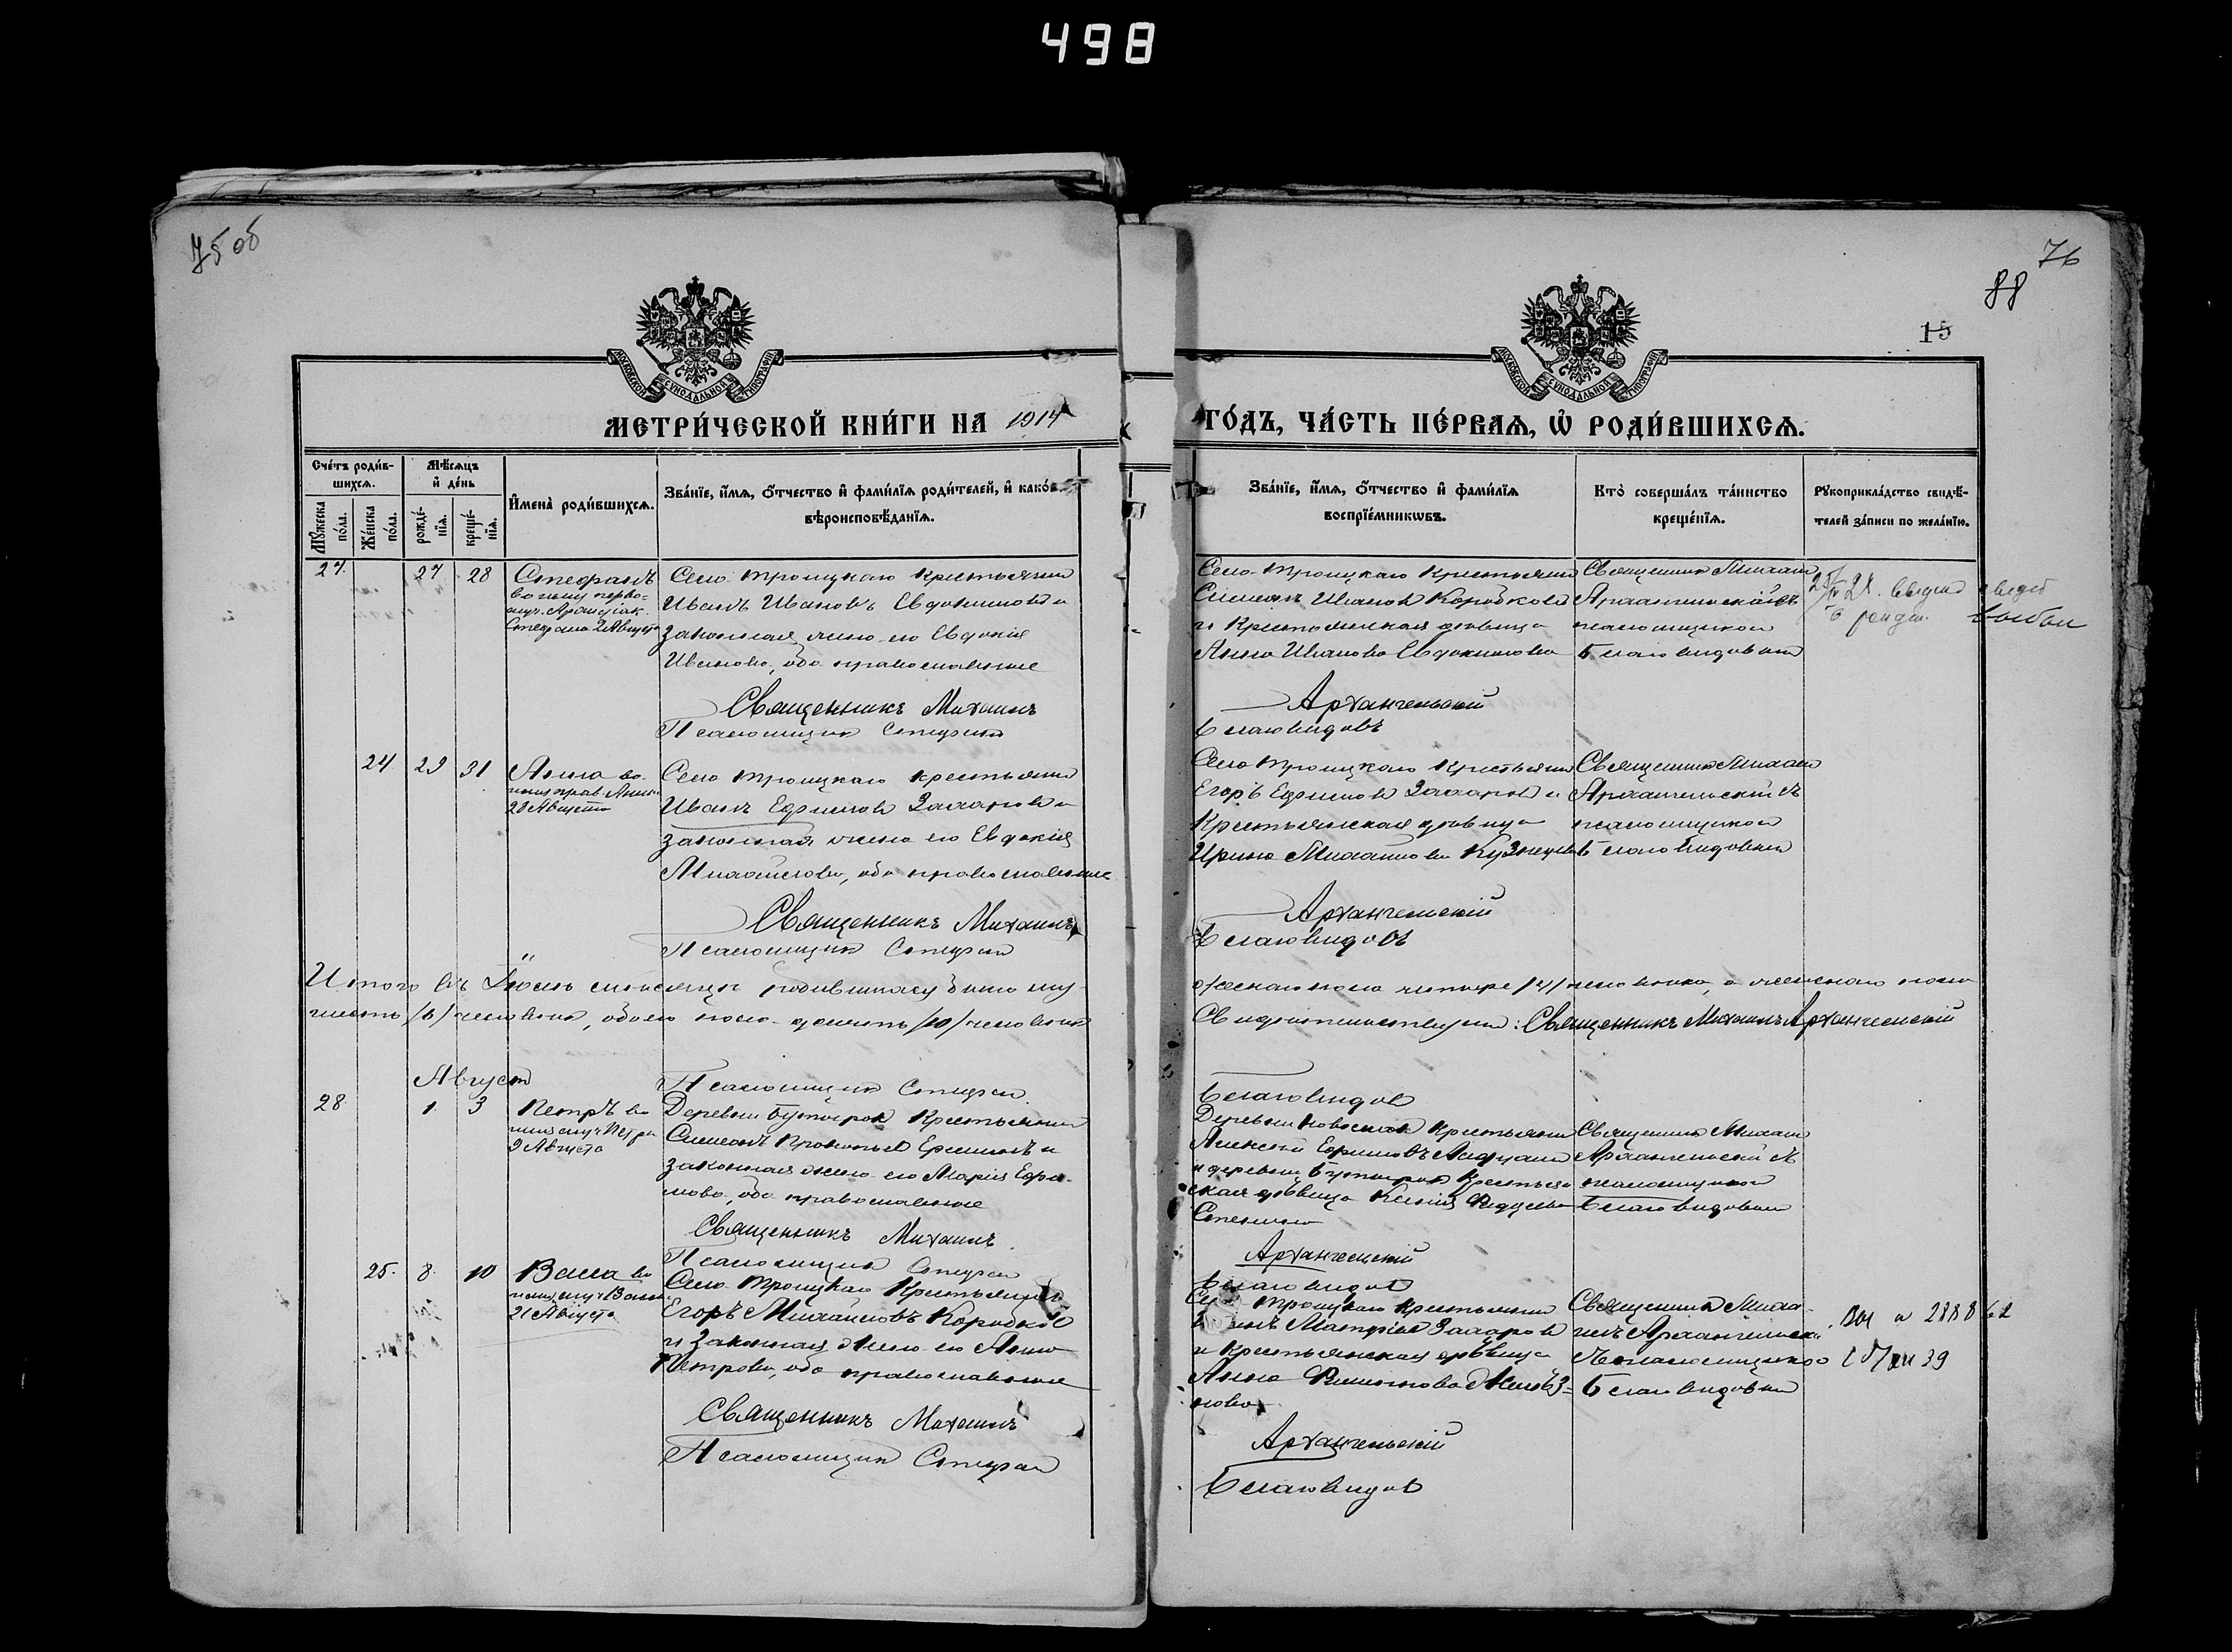 498
75 об
76
88
15
МОСКОВСКОЙ СѴНОДАЛЬНОЙ ТИПОГРАФІИ
МОСКОВСКОЙ СѴНОДАЛЬНОЙ ТИПОГРАФІИ
МЕТРИ́ЧЕСКОЙ КНИ́ГИ НА 1914 ГО́ДЪ, ЧА́СТЬ ПЕ́РВАѦ, Ѡ҆ РОДИ́ВШИХСѦ.
Сче́тъ роди́в-
шихсѧ.
Мꙋ́жеска по́ла.
Же́нска по́ла.
Мѣ́сѧцъ
и҆ де́нь
рожде́-
нїѧ.
креще́-
нїѧ.
И҆мена̀ роди́вшихсѧ.
Зва́нїе, и҆́мѧ, ѻ҆́тчество и҆ фами́лїѧ роди́телей, и҆ како́гѡ
вѣроисповѣ́данїѧ.
Зва́нїе, и҆́мѧ, ѻ҆́тчество и҆ фами́лїѧ
воспрїе́мникѡвъ.
Кто̀ соверша́лъ та́инство
креще́нїѧ.
Рꙋкоприкла́дство свидѣ́-
телей за́писи по жела́нїю.
27. 27 28
Стефанъ
Стефана 2 Августа
Село Троицкаго крестьянинъ
Иванъ Ивановъ Евдокимовъ и
законная жена его Евдокія
Иванова, оба православные
Священникъ Михаилъ
Псаломщикъ Стефанъ
Село Троицкаго крестьянинъ
Симеонъ Ивановъ Коробковъ
и крестьянская дѣвица
Анна Иванова Евдокимова
Архангельскій
Благовидовъ
Священникъ Михаилъ
Архангельскій съ
псаломщикомъ
Благовидовымъ
24 29 31
Анна во
имя прав. Анны
28 Августа
Село Троицкаго крестьянинъ
Иванъ Ефимовъ Захаровъ и
законная жена его Евдокія
Михайлова, оба православные
Священникъ Михаилъ
Псаломщикъ Стефанъ
Село Троицкаго крестьянинъ
Егоръ Ефимовъ Захаровъ и
крестьянская дѣвица
Ирина Михайлова Кузнецова
Архангельскій
Благовидовъ
Священникъ Михаилъ
Архангельскій съ
псаломщикомъ
Благовидовымъ
Итого въ Іюлѣ мѣсяцѣ родившихся было му-
жескаго пола четыре /4/ человѣка, а женскаго пола
шесть /6/ человѣкъ, обоего пола десять /10/ человѣкъ
Свидѣтельствуемъ: Священникъ Михаилъ Архангельскій
Псаломщикъ Стефанъ
Благовидовъ
Августъ
28 1 3
Петръ во
имя муч. Петра
9 Августа
Деревни Бутырокъ крестьянинъ
Симеонъ Прокопьевъ Ереминъ и
законная жена его Марія Ефи-
мова, оба православные
Священникъ Михаилъ
Псаломщикъ Стефанъ
Деревни крестьянинъ
Алексѣй Ефимовъ
и деревни Бутырокъ крестьян-
ская дѣвица Ксенія
Архангельскій
Благовидовъ
Священникъ Михаилъ
Архангельскій съ
псаломщикомъ
Благовидовымъ
25. 8. 10
Васса во
имя муч. Вассы
21 Августа
Село Троицкаго крестьянинъ
Егоръ Михайловъ Коробковъ
и законная жена его Анна
Петрова, оба православные
Священникъ Михаилъ
Псаломщикъ Стефанъ
Село Троицкаго крестьянинъ
Захаровъ
и крестьянская дѣвица
Анна
Архангельскій
Благовидовъ
Священникъ Миха-
илъ Архангельскій
съ псаломщикомъ
Благовидовымъ
39